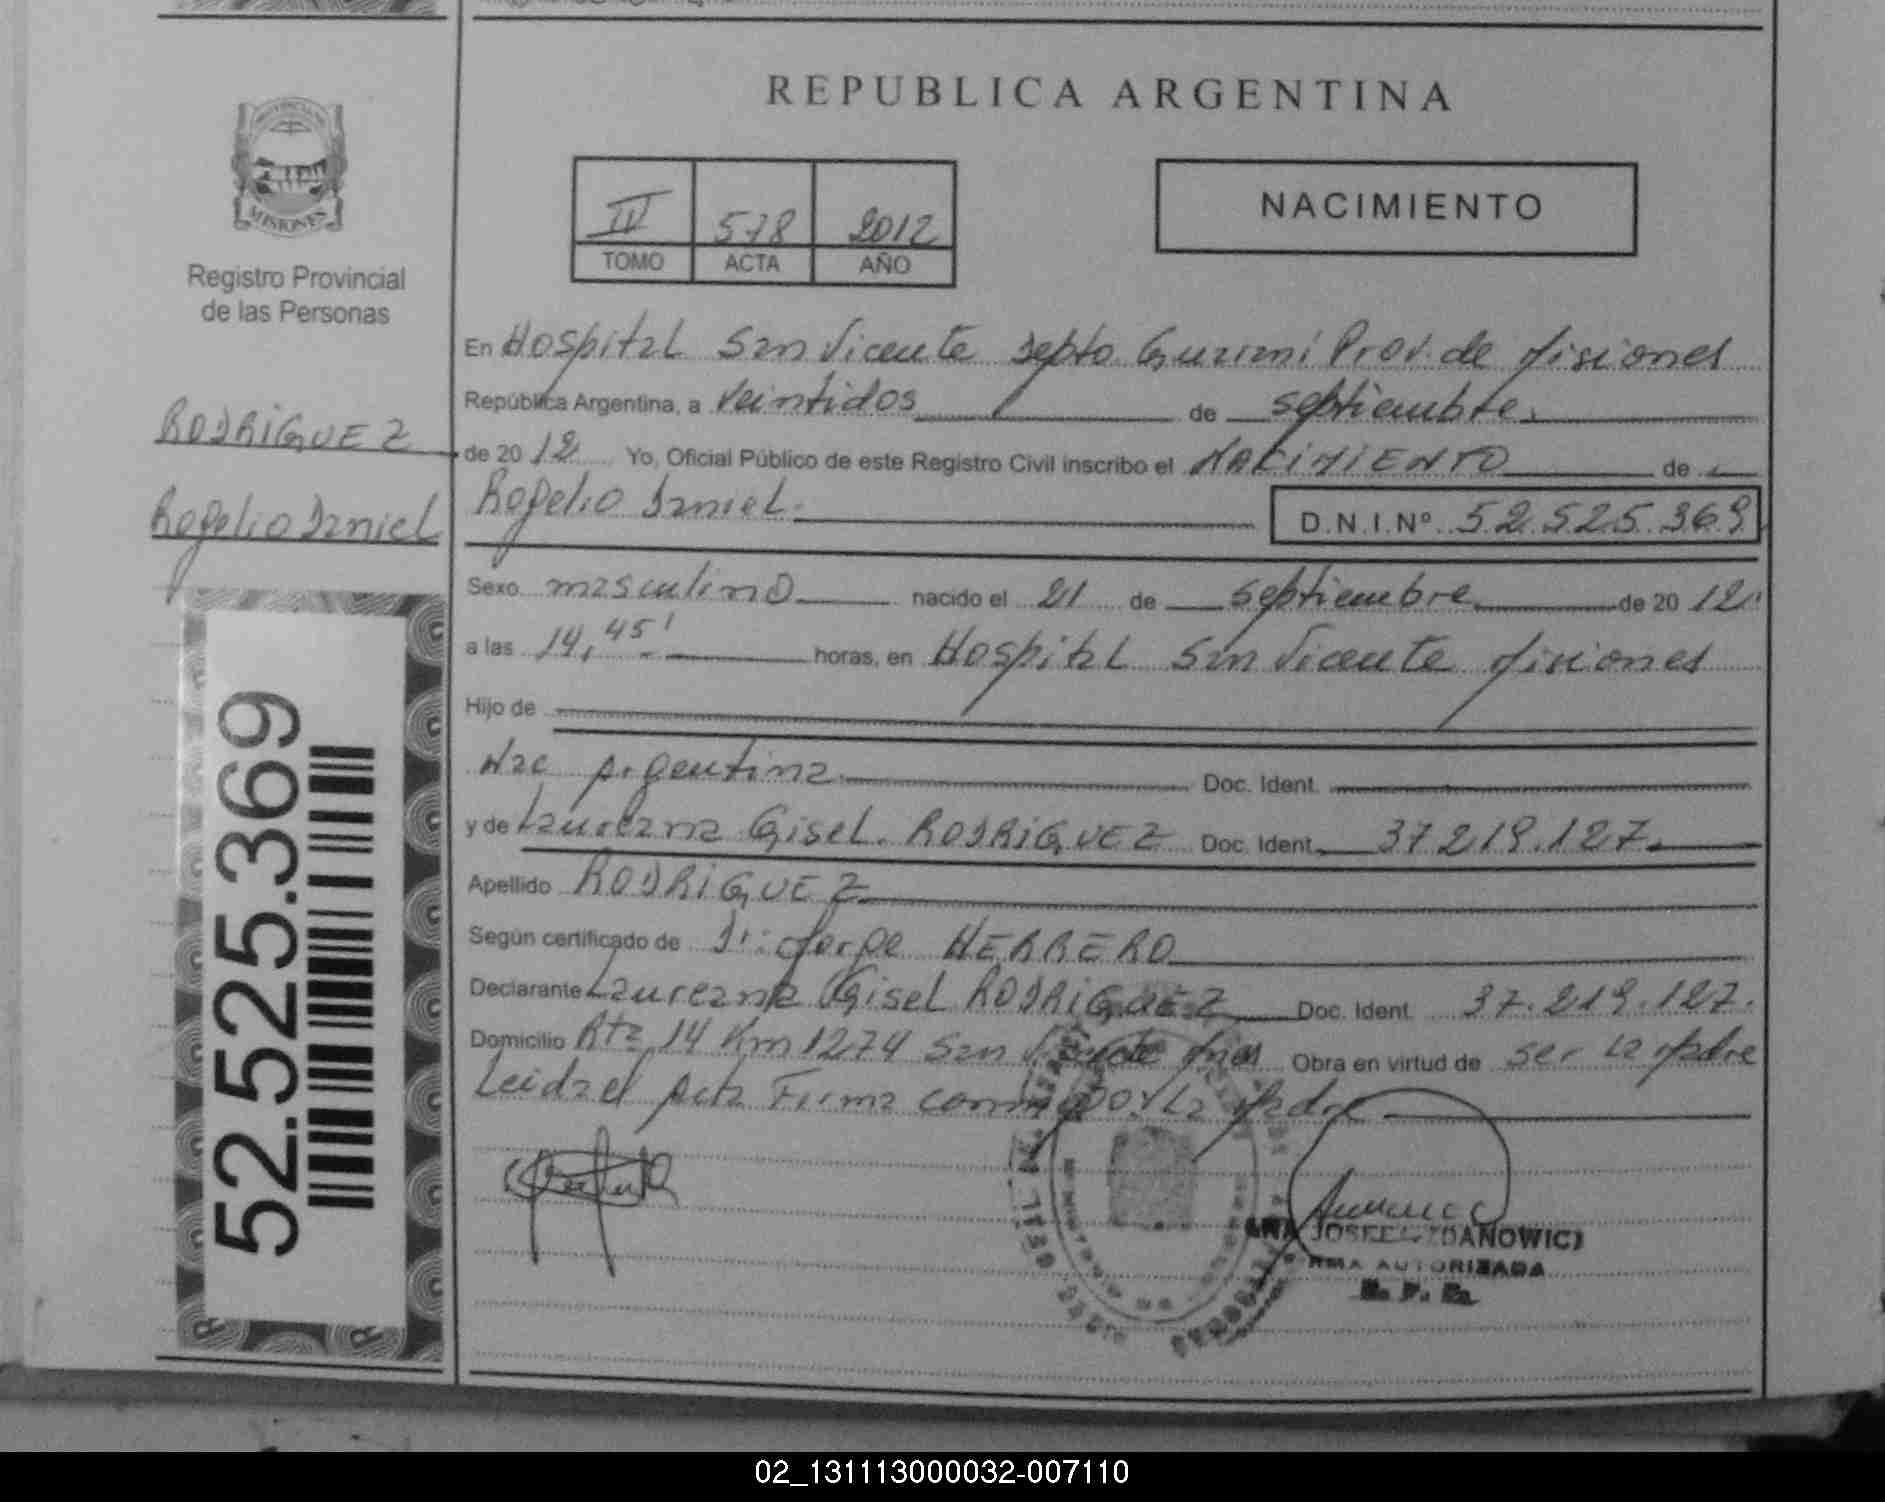 REPUBLICA ARGENTINA
MISIONES
Registro Provincial
de las Personas
IV 578 2012
TOMO ACTA AÑO
NACIMIENTO
En Hospital San Vicente Depto Guarani Prov. de Misiones
República Argentina, a veintidos de septiembre
de 2012 Yo, Oficial Público de este Registro Civil inscribo el NACIMIENTO de
Rogelio Daniel. D.N.I.Nº 52.525.369
RODRIGUEZ
Rogelio Daniel
52.525.369
Sexo masculino nacido el 21 de septiembre de 2012
a las 14,45' horas, en Hospital San Vicente Misiones
Hijo de
Nac Argentina Doc. Ident.
y de Laureana Gisel. RODRIGUEZ Doc. Ident. 37.219.127.
Apellido RODRIGUEZ
Según certificado de Dr: Jorge HERRERO
Declarante Laureana Gisel RODRIGUEZ Doc. Ident. 37.219.127.
Domicilio Rta 14 Km 1274 San Vicente Mnes Obra en virtud de ser la Madre
Leida el Acta Firma conmigo la Madre
AUTORIZADA
02_131113000032-007110